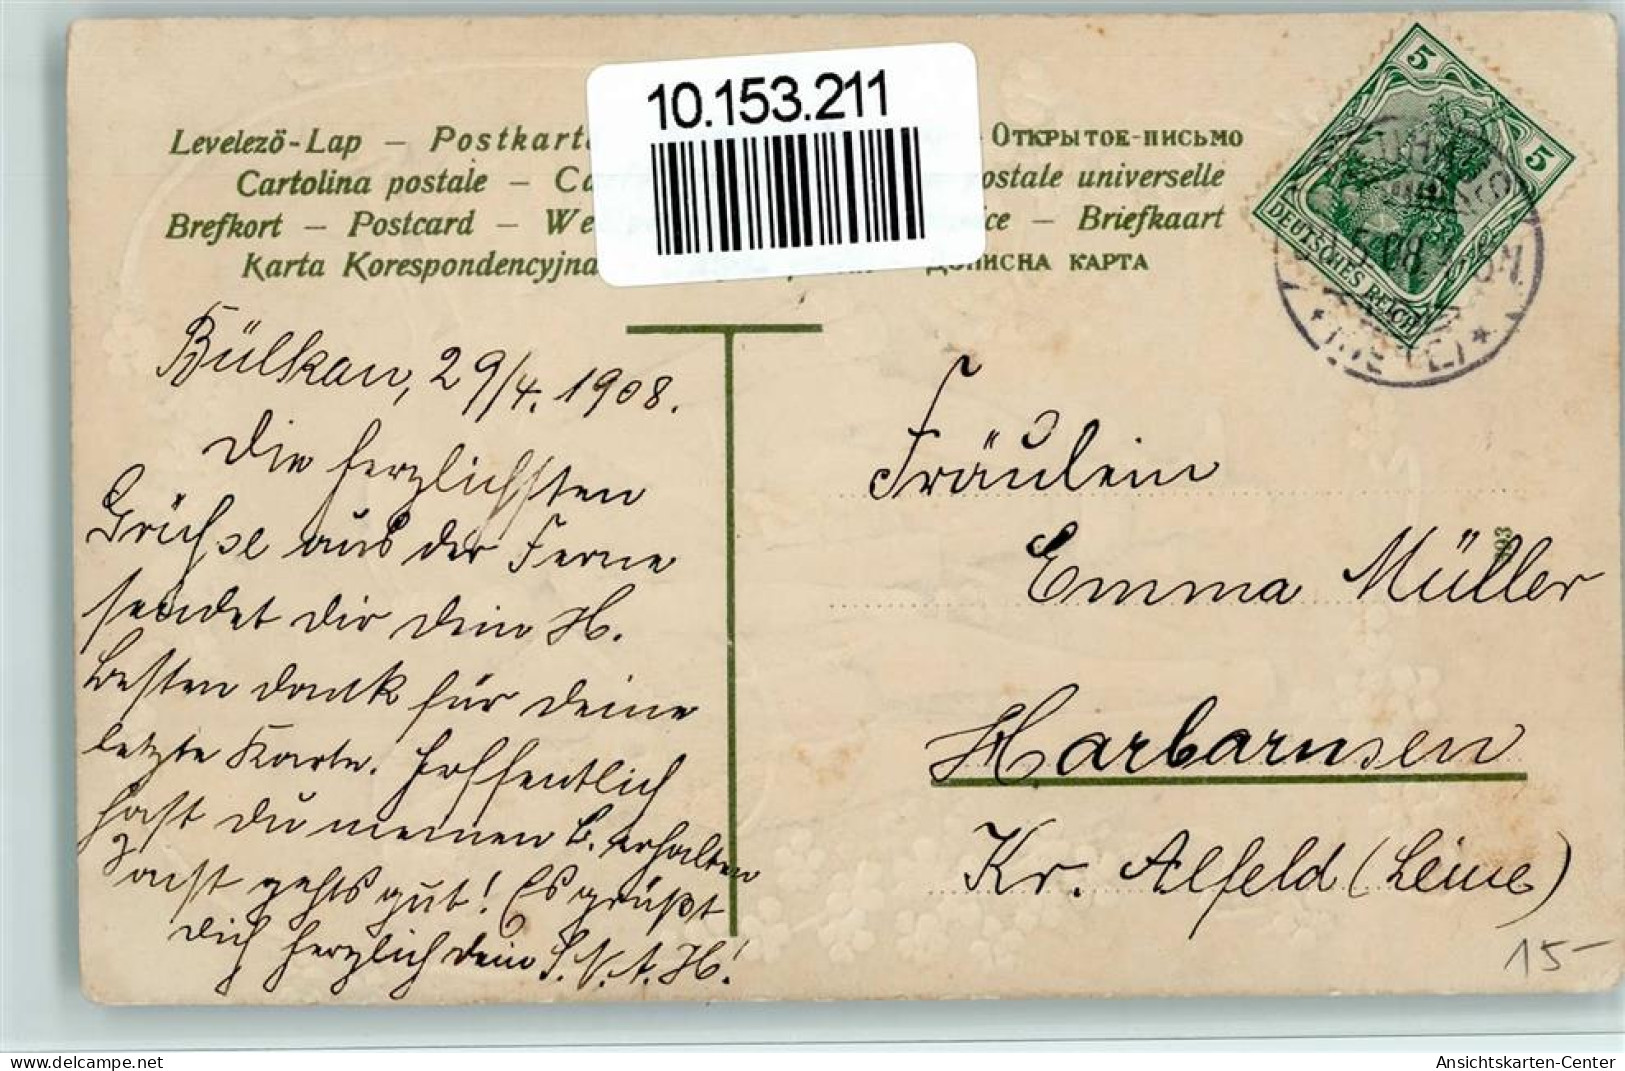 10.153.211
Levelezö-Lap – Postkarte
– Открытое-письмо
Cartolina postale –
postale universelle
Brefkort – Postcard –
– Briefkaart
Karta Korespondencyjna
Дописна карта
5
5
DEUTSCHES REICH
Bülkau, 29/4. 1908.
Die herzlichsten
Grüsse aus der Ferne
sendet Dir dein H.
Besten Dank für deine
letzte Karte. Hoffentlich
hast du meinen B. erhalten
Sonst gehts gut! Es grüßt
dich herzlich dein
Fräulein
Emma Müller
Harbarnsen
Kr. Alfeld (Leine)
15-
www.ak-ansichtskarten.de
Ansichtskarten-Center